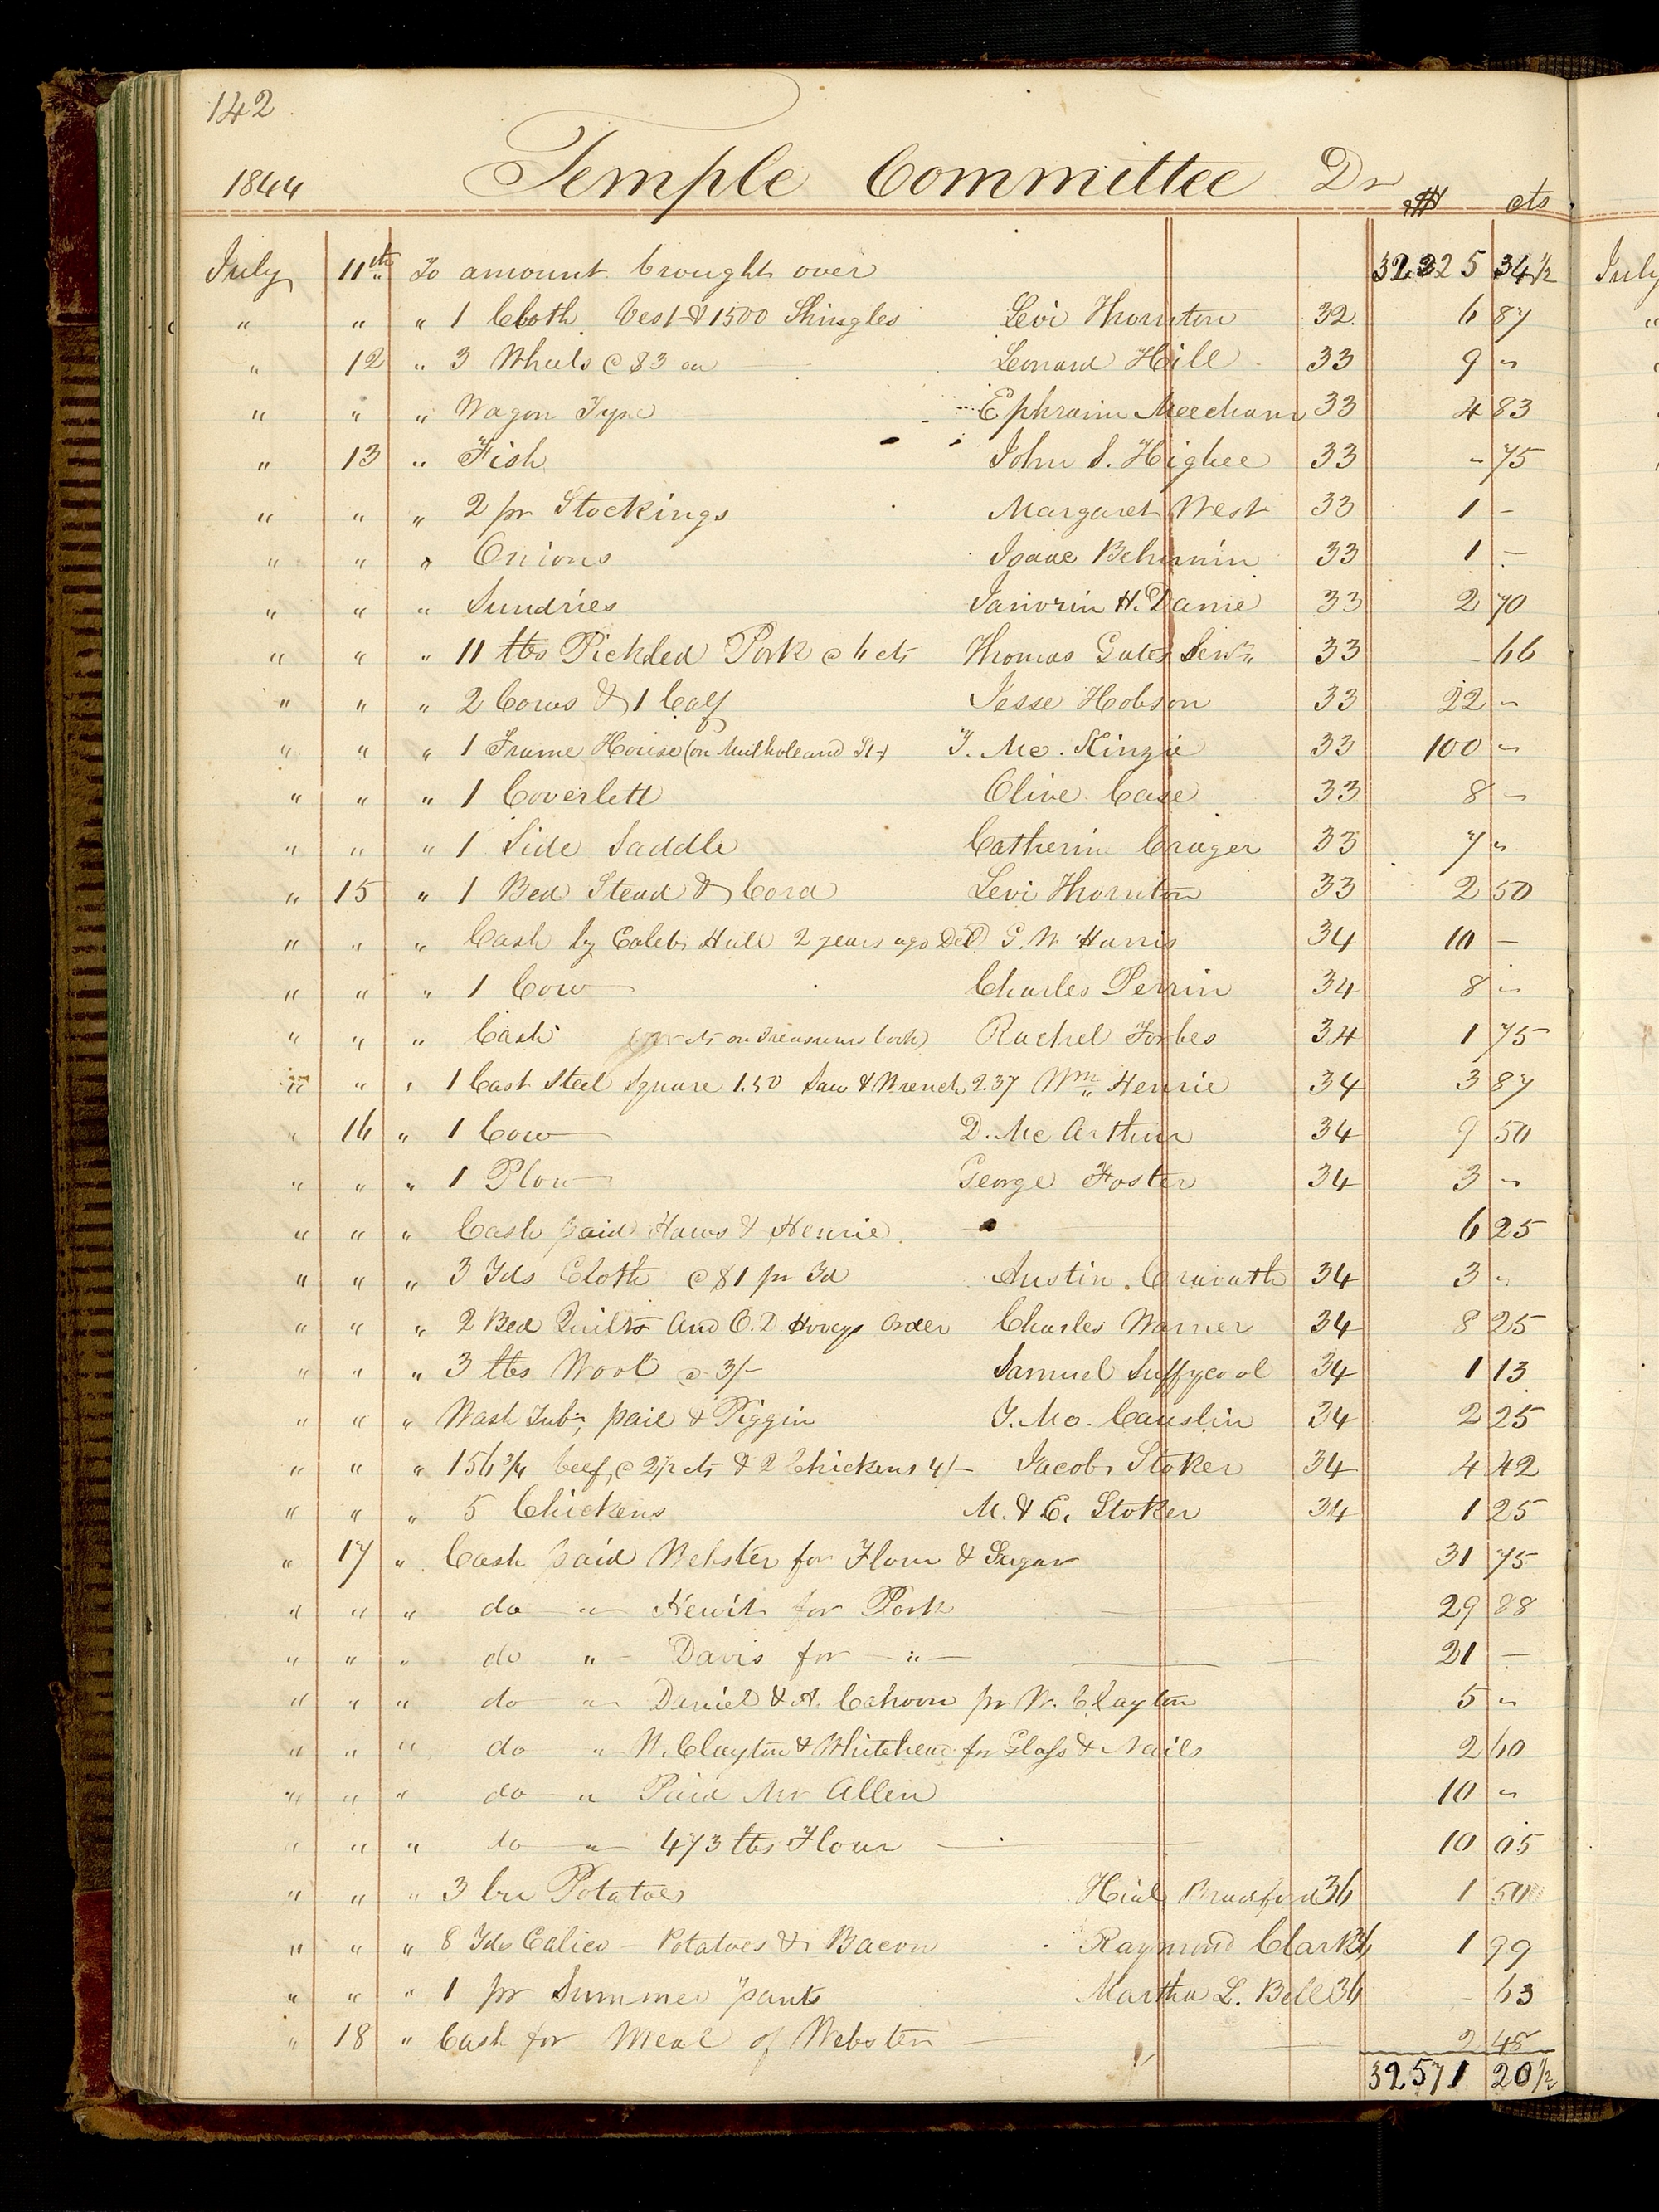 142
1844 Temple Committee Dr $ cts
July 11th To amount brought over 32225 34½
" " " 1 Cloth Vest & 1500 Shingles Levi Thornton 32 6 87
" 12 " 3 Wheels @ $3 ea Leonard Hill 33 9 "
" " " Wagon Tyre Ephraim Meecham 33 4 83
" 13 " Fish John S. Higbee 33 " 75
" " " 2 pr Stockings Margaret West 33 1 –
" " " Onions Isaac Behunnin 33 1 –
" " " Sundries Janvrin H. Dame 33 2 70
" " " 11 lbs Pickled Pork @ 6 cts Thomas Gates Senr 33 – 66
" " " 2 Cows & 1 Calf Jesse Hobson 33 22 "
" " " 1 Frame House (on Mulholeand St) T. Mc. Kinzie 33 100 "
" " " 1 Coverlett Olive Case 33 8 "
" " " 1 Side Saddle Catherine Cruger 33 7 "
" 15 " 1 Bed Stead & Cord Levi Thornton 33 2 50
" " " Cash by Caleb Hall 2 years ago Del G. W. Harris 34 10 –
" " " 1 Cow Charles Perrin 34 8 "
" " " Cash on Treasurers book) Rachel Forbes 34 1 75
" " " 1 Cast Steel Square 1.50 Saw & Wrench 2.37 Wm Henrie 34 3 87
" 16 " 1 Cow D. Mc Arthur 34 9 50
" " " 1 Plow George Foster 34 3 "
" " " Cash paid Haws & Henrie 6 25
" " " 3 Yds Cloth @ $1 pr Yd Austin Cravath 34 3 "
" " " 2 Bed Quilts And O. D. Hoveys Order Charles Warner 34 8 25
" " " 3 lbs Wool @ 3/– Samuel Suffycool 34 1 13
" " " Wash Tub, pail & Piggin Y. Mc. Causlin 34 2 25
" " " 156¾ beef @ 2½ cts & 2 Chickens 4/– Jacob Stoker 34 4 42
" " " 5 Chickens M. & E. Stoker 34 1 25
" 17 " Cash paid Webster for Flour & Sugar 31 75
" " " do " Hewit for Pork 29 88
" " " do " Davis for " 21 –
" " " do " Daniel & A. Cahoon pr W. Clayton 5 "
" " " do " W. Clayton & Whitehead for Glass & Nails 2 60
" " " do " Paid Mr Allen 10 "
" " " do " 473 lbs Flour 10 05
" " " 3 bu Potatoes Hial Bradford 36 1 50
" " " 8 Yds Calico – Potatoes & Bacon Raymond Clark 36 1 99
" " " 1 pr Summer pants Martha L. Bell 36 – 63
" 18 " Cash for Meal of Webster 2 45
32571 20½